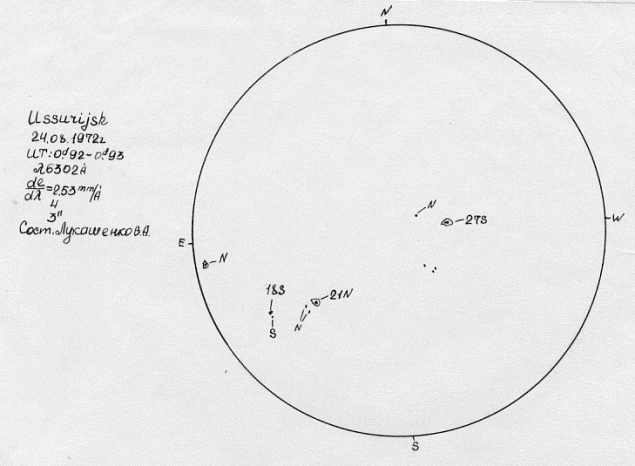 N
Ussurijsk
24.08.1972г
UT: 0ᵈ92-0ᵈ93
λ6302Å
de/dλ=2.53 mm/Å
4
3"
Сост. Лукашенко В.А.
N
27S
W
E
N
18S
21N
S
N
S